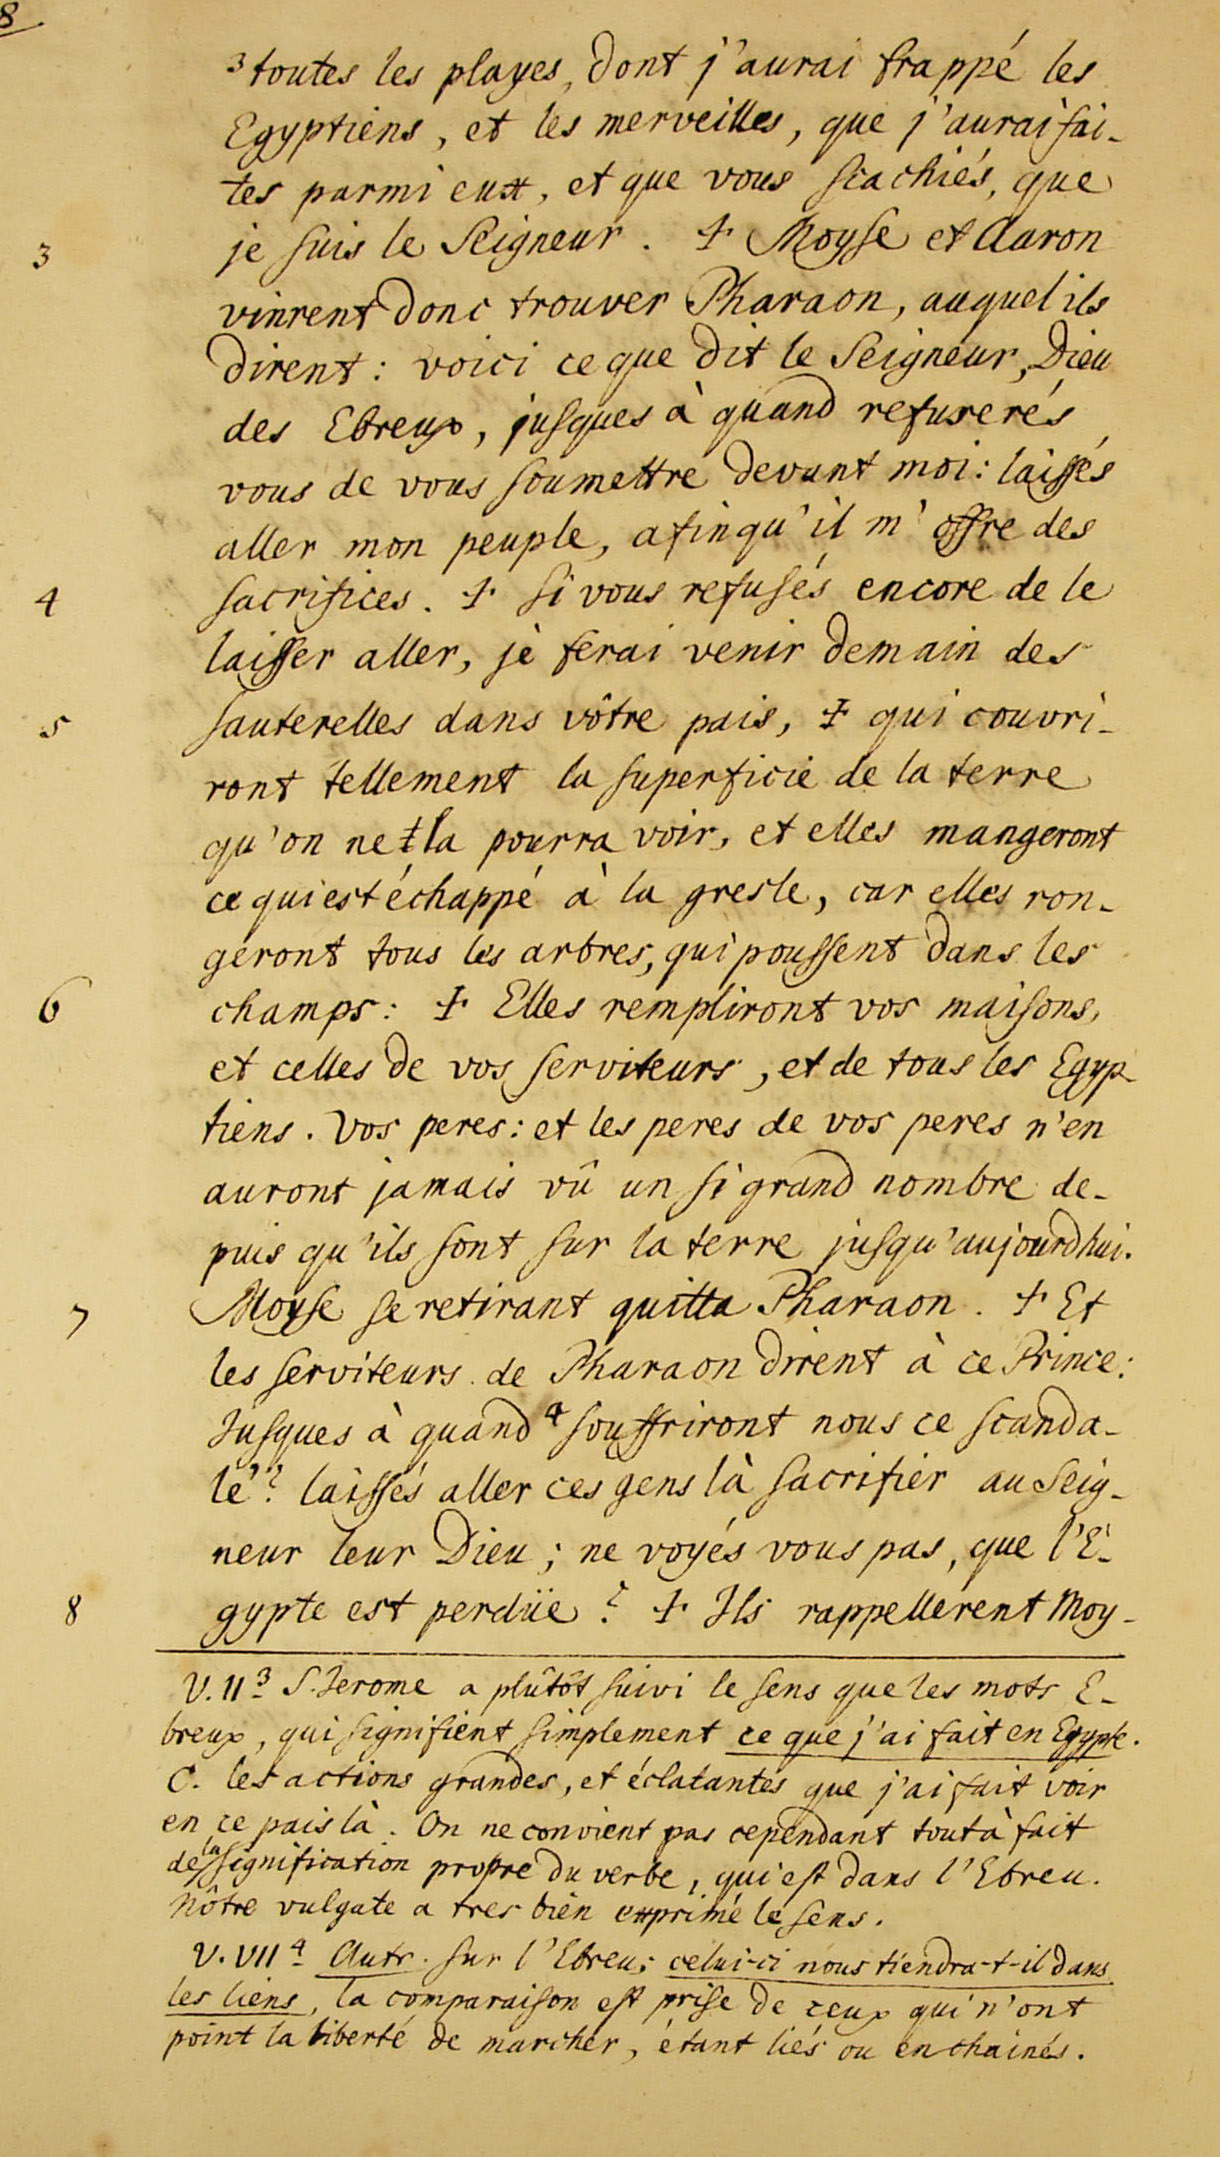 8
³toutes les playes, dont j'aurai frappé les
Egyptiens, et les merveilles, que j'aurai fai-
tes parmi eux, et que vous scachiés, que
3 je suis le Seigneur. + Moyse et Aaron
vinrent donc trouver Pharaon, auquel ils
dirent: voici ce que dit le Seigneur, Dieu
des Ebreux, jusques à quand refuserés
vous de vous soumettre devant moi: laissés
aller mon peuple, afinqu'il m'offre des
4 sacrifices. + si vous refusés encore de le
laisser aller, je ferai venir demain des
5 sauterelles dans vôtre pais, + qui couvri-
ront tellement la superficie de la terre
qu'on ne la pourra voir, et elles mangeront
ce qui est échappé à la gresle, car elles ron-
geront tous les arbres, qui poussent dans les
6 champs: + Elles rempliront vos maisons,
et celles de vos serviteurs, et de tous les Egyp-
tiens. Vos peres: et les peres de vos peres n'en
auront jamais vû un si grand nombre de-
puis qu'ils sont sur la terre jusqu'aujourdhui.
7 Moyse se retirant quitta Pharaon. + Et
les serviteurs de Pharaon dirent à ce Prince:
Jusques à quand ⁴ souffriront nous ce scanda-
le? laissés aller ces gens là sacrifier au Seig-
neur leur Dieu; ne voyés vous pas, que l'E-
8 gypte est perdüe? + Ils rappellerent Moy-
V. II ³ S. Jerome a plûtôt suivi le sens que les mots E-
breux, qui signifient simplement ce que j'ai fait en Egypte.
C. les actions grandes, et éclatantes que j'ai fait voir
en ce pais là. On ne convient pas cependant tout à fait
de la signification propre du verbe, qui est dans l'Ebreu.
Nôtre vulgate a tres bien exprimé le sens.
V. VII ⁴ Autr. sur l'Ebreu; celui-ci nous tiendra-t-il dans
les liens, la comparaison est prise de ceux qui n'ont
point la liberté de marcher, étant liés ou enchainés.